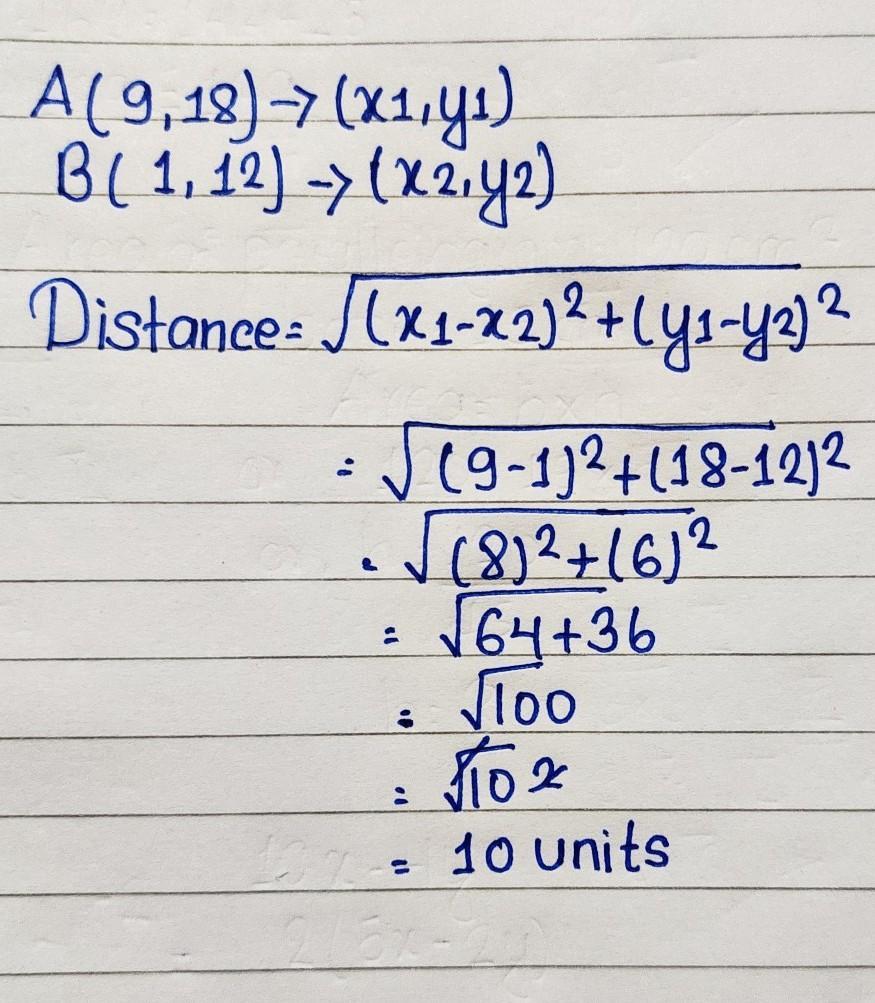 A(9,18)→(x1,y1)
B(1,12)→(x2,y2)
Distance=√(x1-x2)²+(y1-y2)²
=√(9-1)²+(18-12)²
=√(8)²+(6)²
=√64+36
=√100
=√10²
=10 units